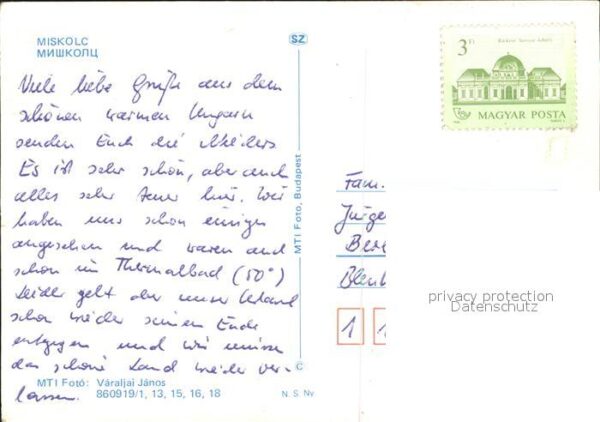 MISKOLC
МИШКОЛЦ
SZ
Viele liebe Grüße aus dem
schönen warmen Ungarn
senden Euch die
Es ist sehr schön, aber auch
alles sehr teuer hier. Wir
haben uns schon einiges
angesehen und waren auch
schon im Thermalbad (50°)
Leider geht der unser Urlaub
schon wieder seinem Ende
entgegen und wir müssen
das schöne Land wieder ver-
lassen.
MTI Fotó: Váraljai János
860919/1, 13, 15, 16, 18
N. S. Ny
MTI Foto, Budapest
C
3 Ft
MAGYAR POSTA
Fam.
Jürge
Ber
Blen
1
privacy protection
Datenschutz